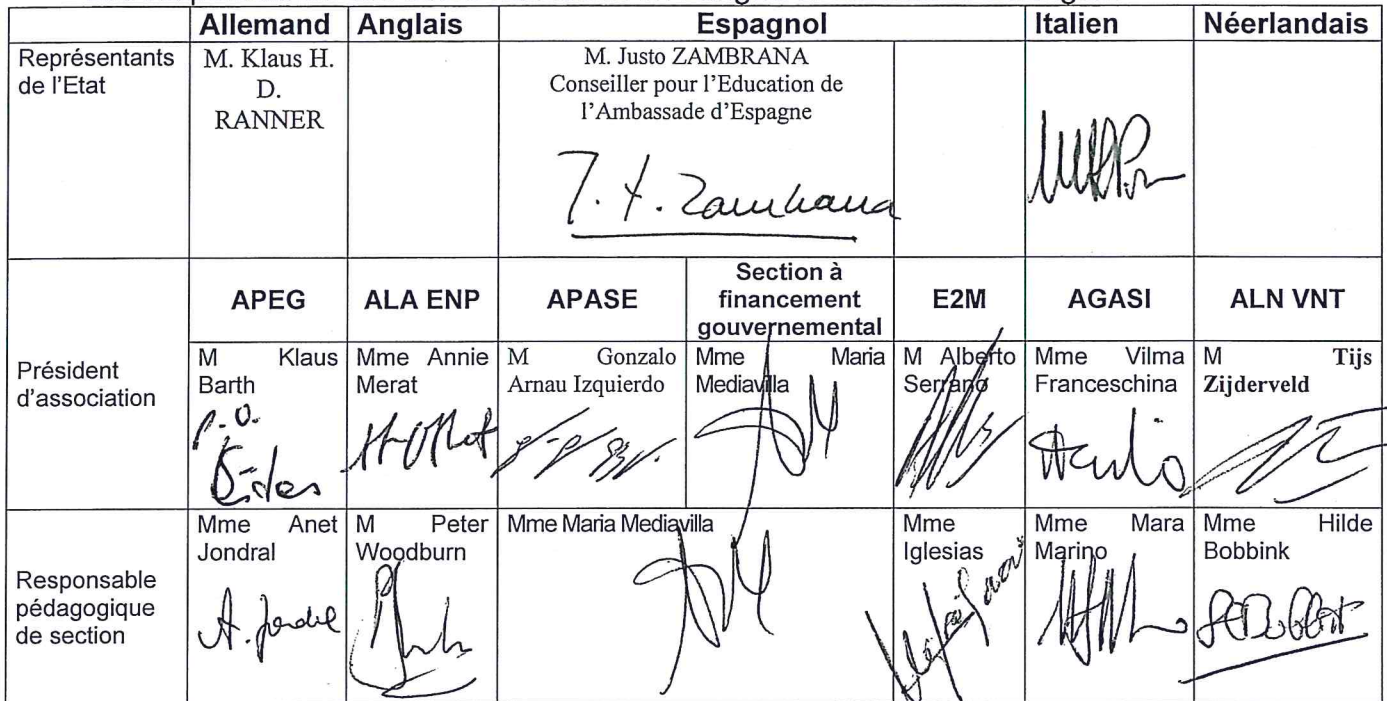 Allemand Anglais Espagnol Italien Néerlandais
Représentants de l'Etat
M. Klaus H.
D.
RANNER
M. Justo ZAMBRANA
Conseiller pour l'Education de
l'Ambassade d'Espagne
J. Zambrana
APEG ALA ENP APASE Section à financement gouvernemental E2M AGASI ALN VNT
Président d'association
M Klaus
Barth
p.o.
Mme Annie
Merat
M Gonzalo
Arnau Izquierdo
Mme Maria
Mediavilla
M Alberto
Serrano
Mme Vilma
Franceschina
M Tijs
Zijderveld
Responsable
pédagogique
de section
Mme Anet
Jondral
A. Jondral
M Peter
Woodburn
Mme Maria Mediavilla
Mme
Iglesias
Mme Mara
Marino
Mme Hilde
Bobbink